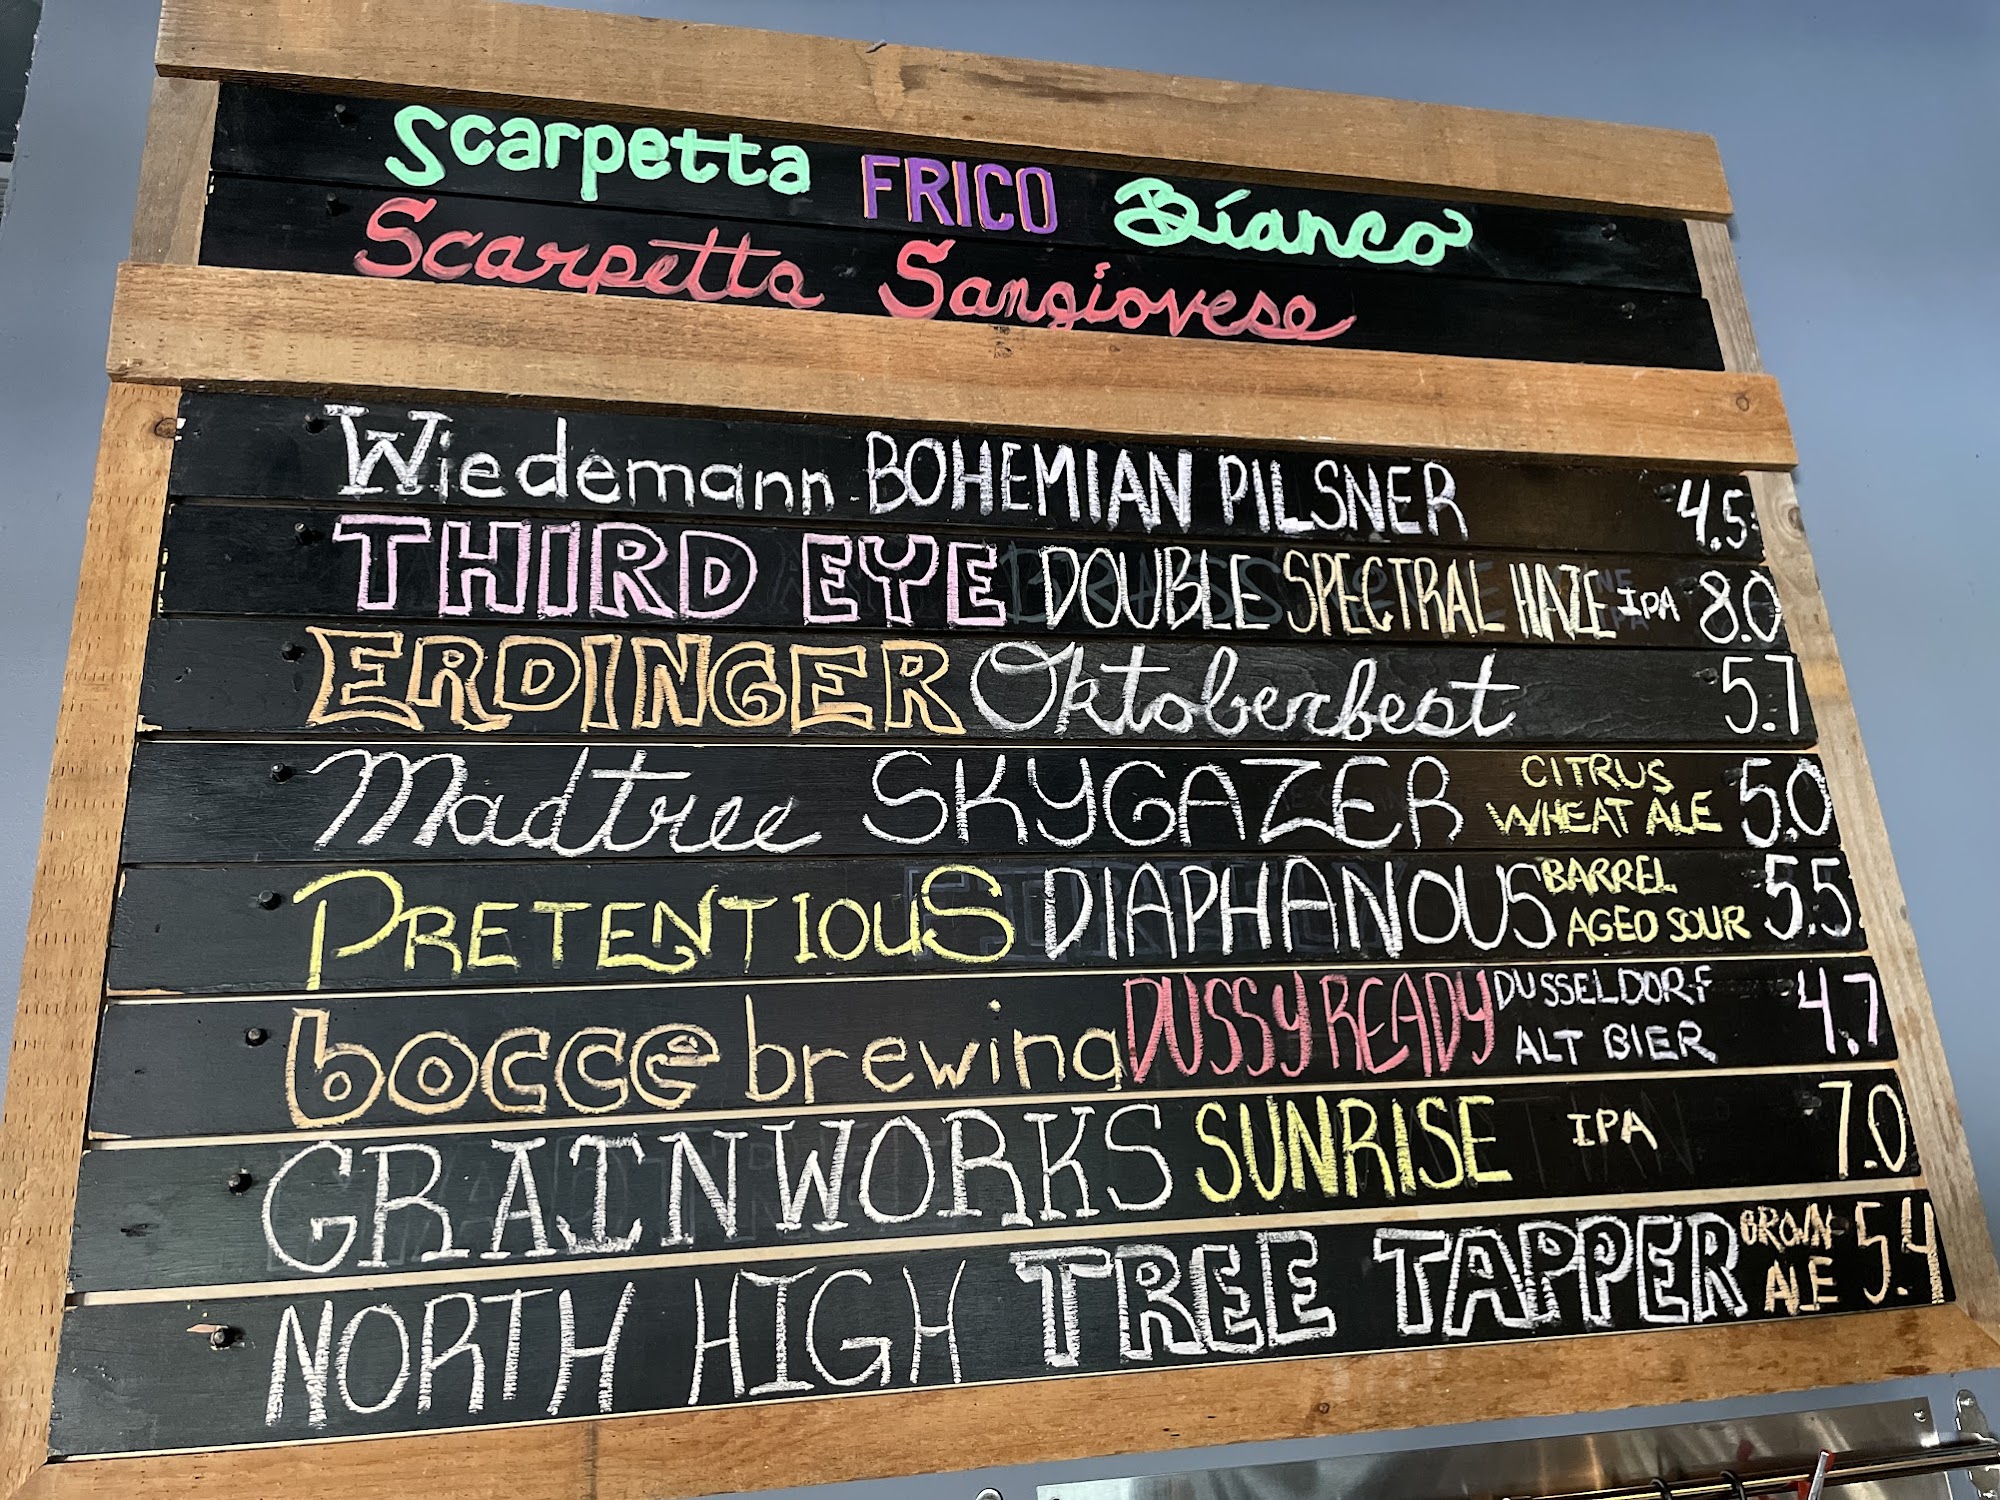 Scarpetta FRICO Bianco
Scarpetta Sangiovese
Wiedemann BOHEMIAN PILSNER 4.5
THIRD EYE DOUBLE SPECTRAL HAZE IPA 8.0
ERDINGER Oktoberfest 5.7
Madtree SKYGAZER CITRUS WHEAT ALE 5.0
PRETENTIOUS DIAPHANOUS BARREL AGED SOUR 5.5
bocce brewing DUSSY READY DUSSELDORF ALT BIER 4.7
GRAINWORKS SUNRISE IPA 7.0
NORTH HIGH TREE TAPPER BROWN ALE 5.4